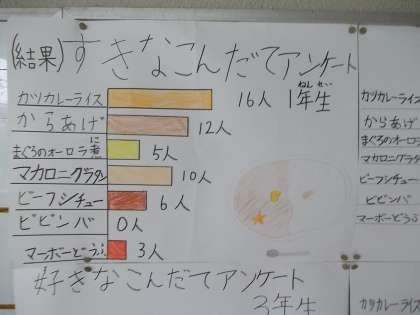 (結果)すきなこんだてアンケート
1年生
ねんせい
カツカレーライス 16人
からあげ 12人
まぐろのオーロラ煮 5人
に
マカロニグラタン 10人
ビーフシチュー 6人
ビビンバ 0人
マーボーどうふ 3人
好きなこんだてアンケート
3年生
カツカレーライス
からあげ
まぐろのオーロラ
マカロニグラタン
ビーフシチュー
ビビンバ
マーボーどうふ
カツカレーライス